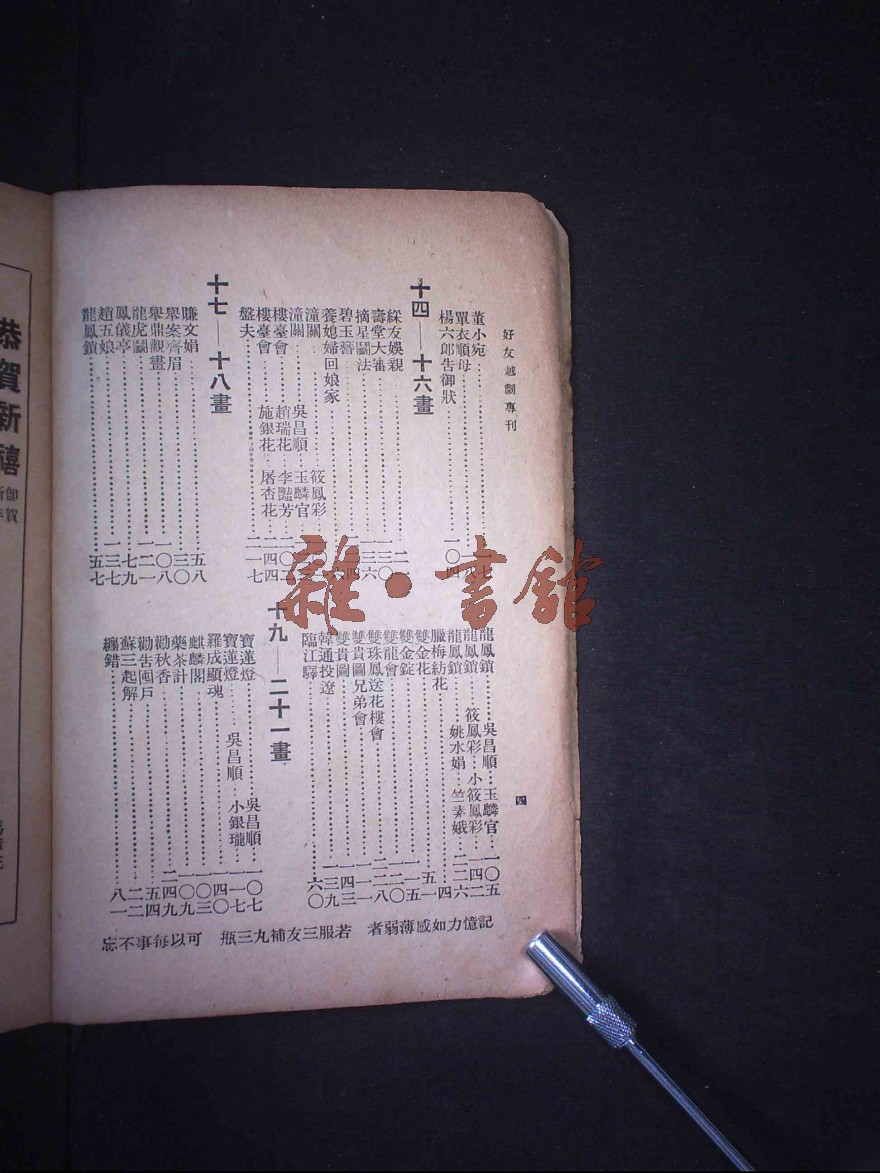 好友越劇專刊
董小宛
單衣順母
楊六郎告御狀 一〇四
十四——十六畫
綵友娛親
壽堂大審
摘星鬭法
碧玉簪
養媳婦回娘家
潼關 筱鳳彩
潼關 吳昌順 玉麟官
樓臺會 趙瑞花 李豔芳
樓臺會 施銀花 屠杏花
盤夫 二一七
十七——十八畫
賺文娟 五八
舉案齊眉 三〇
舉鼎觀畫 一〇八
龍虎鬭 一二一
鳳儀亭 七九
趙五娘 一三七
龍鳳鎖 五七
龍鳳鎖 吳昌順 玉麟官 一〇五
龍鳳鎖 筱鳳彩 小筱鳳彩 二四二
龍鳳鎖 姚水娟 竺素娥 二二六
臘梅紡花
雙金花
雙金錠
雙龍會
雙珠鳳送花樓會
雙貴圖兄弟會
雙貴圖
韓通投遼 一三九
臨江驛 六〇
十九——二十一畫
寶蓮燈 吳昌順 一〇七
寶蓮燈 吳昌順 小銀瓏 一一七
羅成顯魂 四〇
麒麟閣 一〇三
藥茶計 一〇九
勸秋香 二四九
勸告囤戶 五四
蘇三起解 二二
纏錯 八一
四
記憶力如感薄弱者 若服三友補丸三瓶 可以每事不忘
恭賀新禧
雜·書館